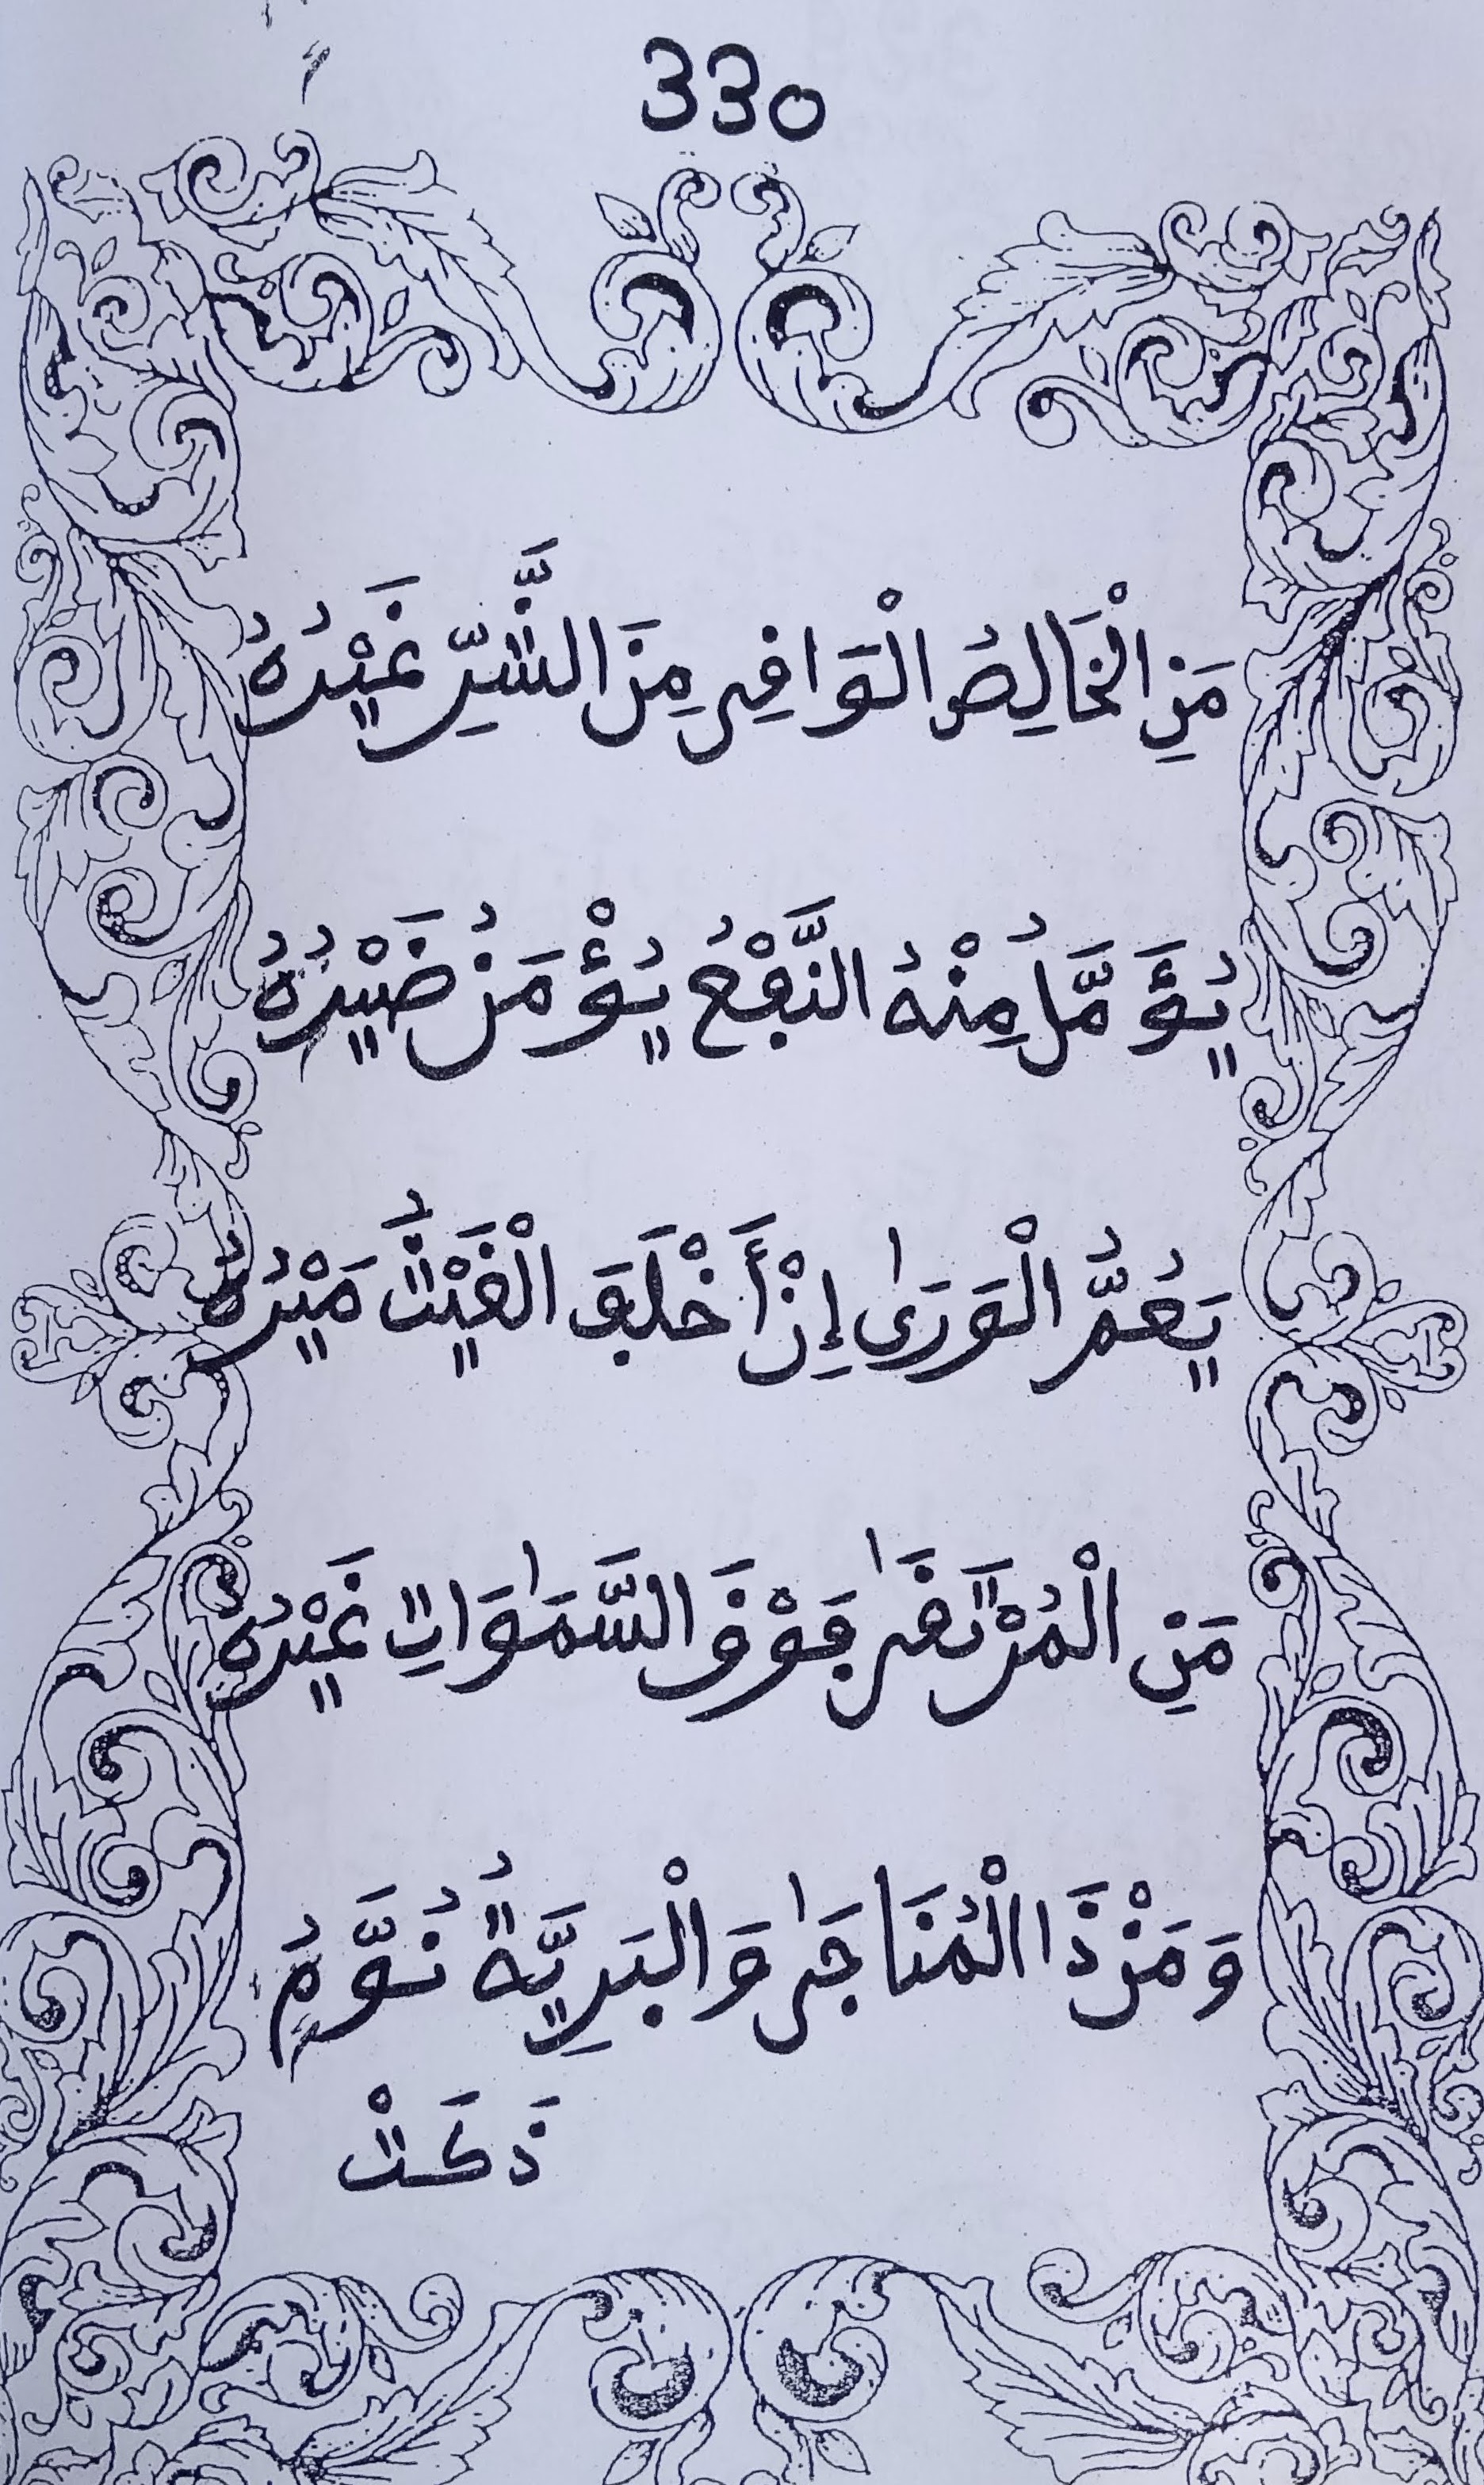 330
مَنِ الْخَالِصُ الْوَافِي مِنَ الشَّرِّ غَيْرُهُ
يُؤَمَّلُ مِنْهُ النَّفْعُ يُؤْمَنُ ضَيْرُهُ
يَعُمُّ الْوَرَىٰ إِنْ أَخْلَفَ الْغَيْثُ مَيْرُهُ
مَنِ الْمُرْتَقَىٰ فَوْقَ السَّمَٰوَاتِ غَيْرُهُ
وَمَنْ ذَا الْمُنَاجَىٰ وَالْبَرِيَّةُ نُوَّمُ
ذَكَتْ